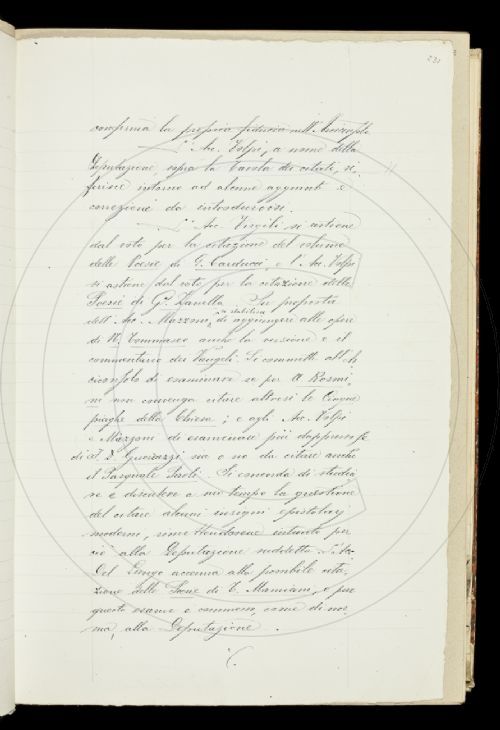 231
conferma la propria fiducia nell'Arciconsolo
L'Ac. Volpi, a nome della
Deputazione sopra la Tavola dei citati, ri-
ferisce intorno ad alcune aggiunte e
correzioni da introdurvisi.
L'Ac. Virgili si astiene
dal voto per la citazione del volume
delle Poesie di G. Carducci, e l'Ac. Volpi
si astiene dal voto per la citazione delle
Poesie di G. Zanella. Su proposta
dell'Ac. Mazzoni, si stabilisce di aggiungere alle opere
di N. Tommaseo anche la versione e il
commentario dei Vangeli. Si commette all'Ar-
ciconsolo di esaminare se per A. Rosmi-
ni non convenga citare altresì le Cinque
piaghe della Chiesa; e agli Ac. Volpi
e Mazzoni di esaminare più dappresso se
di F. D. Guerrazzi sia o no da citare anche
il Pasquale Paoli. Si
re e discutere a suo tempo la questione
del citare alcuni insigni epistolarj
moderni, rimettendosene intanto per
ciò alla Deputazione suddetta. L'Ac.
Del Lungo accenna alla possibile cita-
zione delle Prose di T. Mamiani, e per
questo esame è commesso, come di nor-
ma, alla Deputazione.